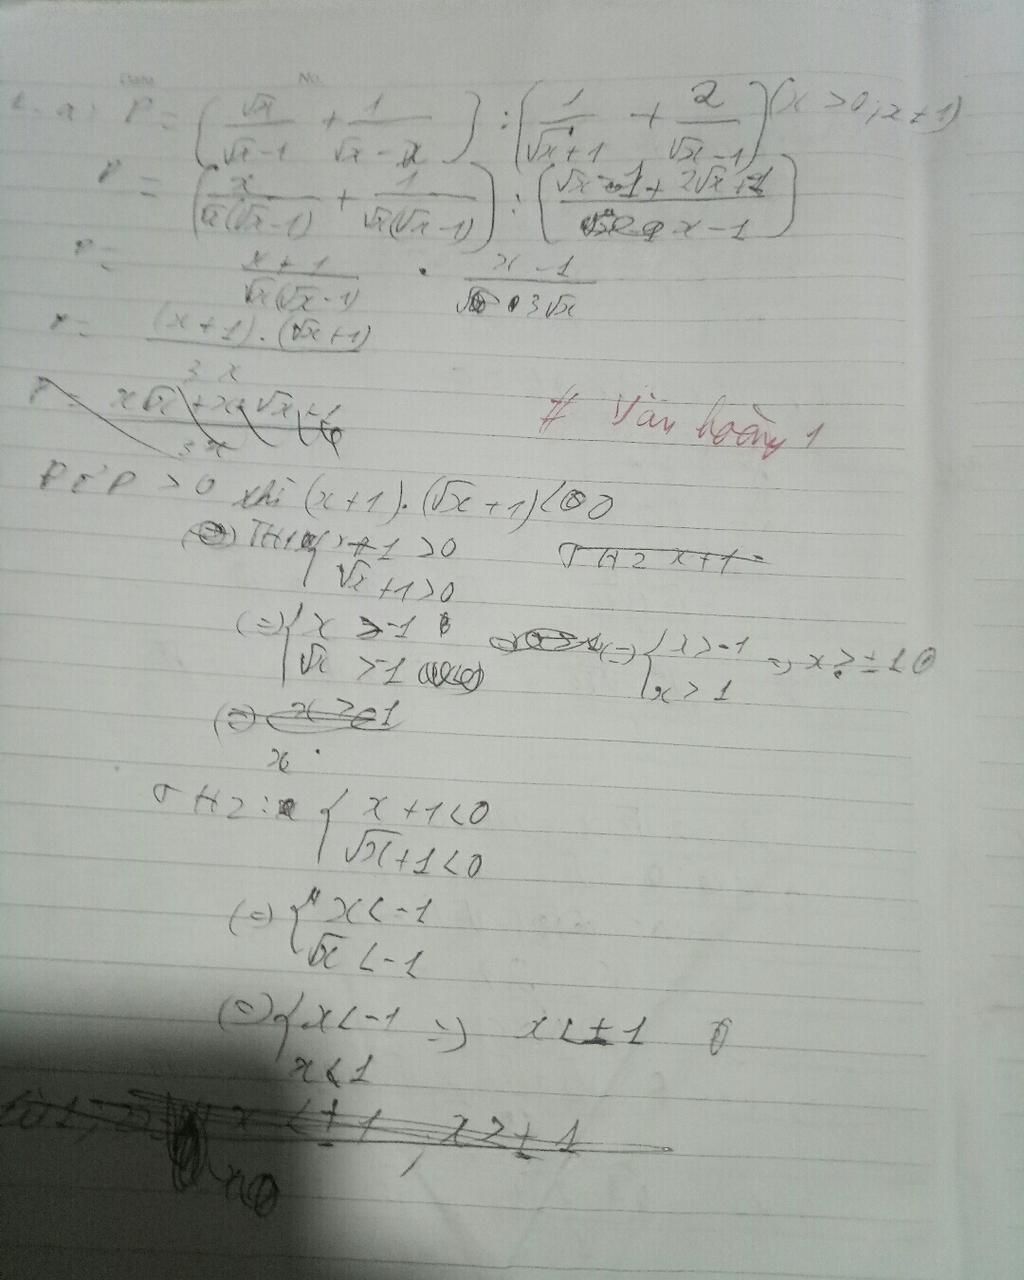 Date No.
1. a: P = (√x/(√x-1) + 1/(√x-x)) : (1/(√x+1) + 2/(√x-1)) (x > 0; x ≠ 1)
P = (x/(√x(√x-1)) + 1/(√x(√x-1))) : ((√x-1+2√x+1)/(x-1))
P = (x+1)/(√x(√x-1)) . (x-1)/(3√x)
P = ((x+1).(√x+1))/(3x)
P = (x√x+x+√x+1)/(3x)
# Văn hoàng 1
Để P > 0 khi (x+1).(√x+1) < 0
(=) TH1 { x+1 > 0 TH2 x+1 =
√x+1 > 0
(=) { x > -1 (=) { x > -1 => x > ±1
√x > -1 x > 1
(=) x > -1
x
TH2: { x+1 < 0
√x+1 < 0
(=) { x < -1
√x < -1
(=) { x < -1 => x < ±1
x < 1
x < ±1, x > ±1